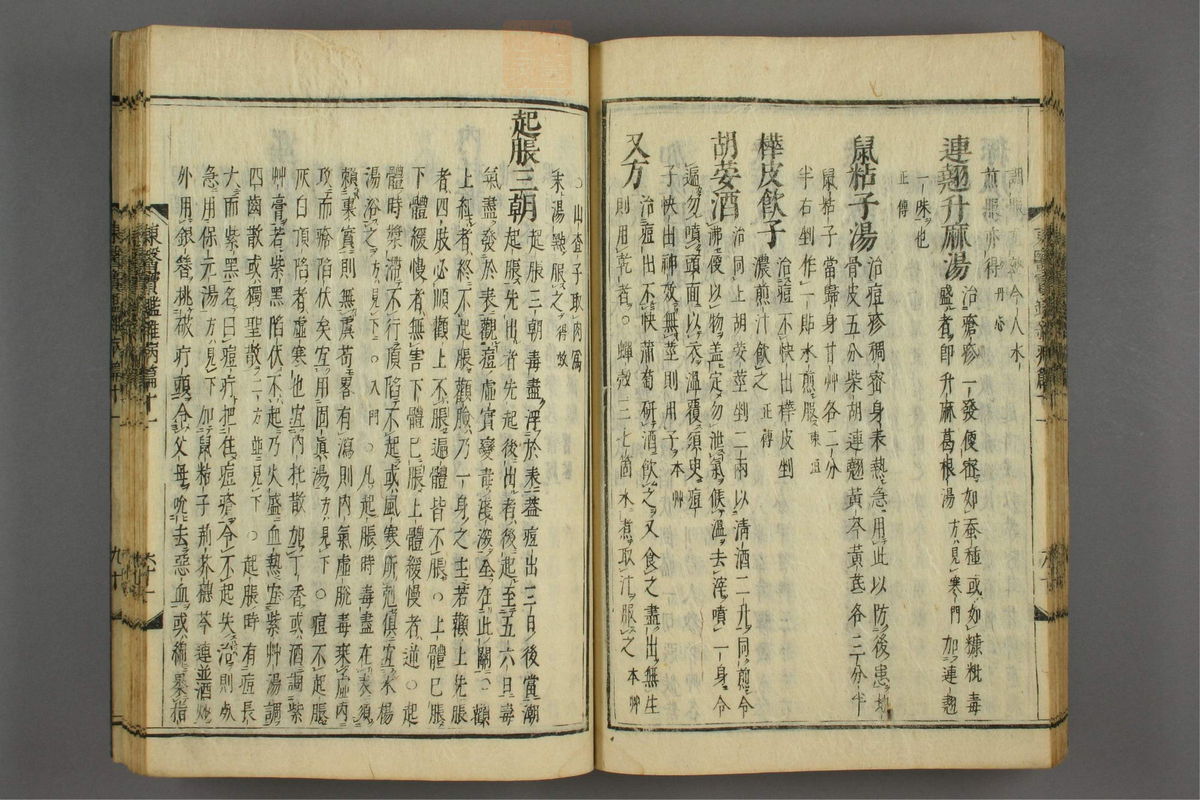 今人水
煎服亦得 丹心
連翹升麻湯 治瘡疹一發便密如蠶種或如糠粃毒
盛者卽升麻葛根湯方見寒門加連翹
一味也
正傳
鼠粘子湯 治痘疹稠密身表熱急用此以防後患地
骨皮五分柴胡連翹黃芩黃芪各二分半
鼠粘子當歸身甘艸各二分
半右剉作一貼水煎服 東垣
樺皮飮子 治痘不快出樺皮剉
濃煎汁飮之 正傳
胡荽酒 治同上胡荽莖剉二兩以淸酒二升同煎令
沸便以物盖定勿泄氣候溫去滓噴一身令
遍勿噴頭面以衣溫覆須臾痘
子快出神效無莖則用子 本艸
又方 治痘出不快葡萄硏酒飮之又食之盡出無生
則用乾者○蟬殼三七箇水煮取汁服之 本艸
○山査子取肉爲
末湯點服之 得效
起脹三朝 起脹三朝毒盡浮於表盖痘出三日後當潮
起脹先出者先起後出者後起至五六日毒
氣盡發於表觀痘虛實變毒淺深全在此關○顴
上紅者終不起脹觀臉乃一身之主若顴上先脹
者四肢必順觀上不脹遍體皆不脹○上體已脹
下體緩慢者無害下體已脹上體緩慢者逆○起
體時漿滯不行頂陷不起或風寒所剋俱宜水楊
湯浴之方見下○入門○凡起脹時毒盡在表須
賴裏實則無虞苟畧有瀉則內氣虛脫毒乘虛內
攻而瘡陷伏矣宜用固眞湯方見下○痘不起脹
灰白頂陷者虛寒也宜內托散加丁香或酒調紫
艸膏若紫黑陷伏不起乃火盛血熱宜紫艸湯調
四齒散或獨聖散二方並見下○起脹時有痘長
大而紫黑名曰痘疔把住痘瘡令不起失治則死
急用保元湯方見下加鼠粘子荊芥穗芩連並酒炒
外用銀簪挑破疔頭令父母吮去惡血或綿裹指
東醫寶鑑雜病篇十一